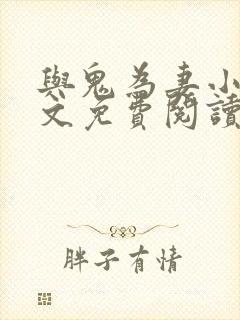 與鬼為妻小
文免費閱讀
胖子有情